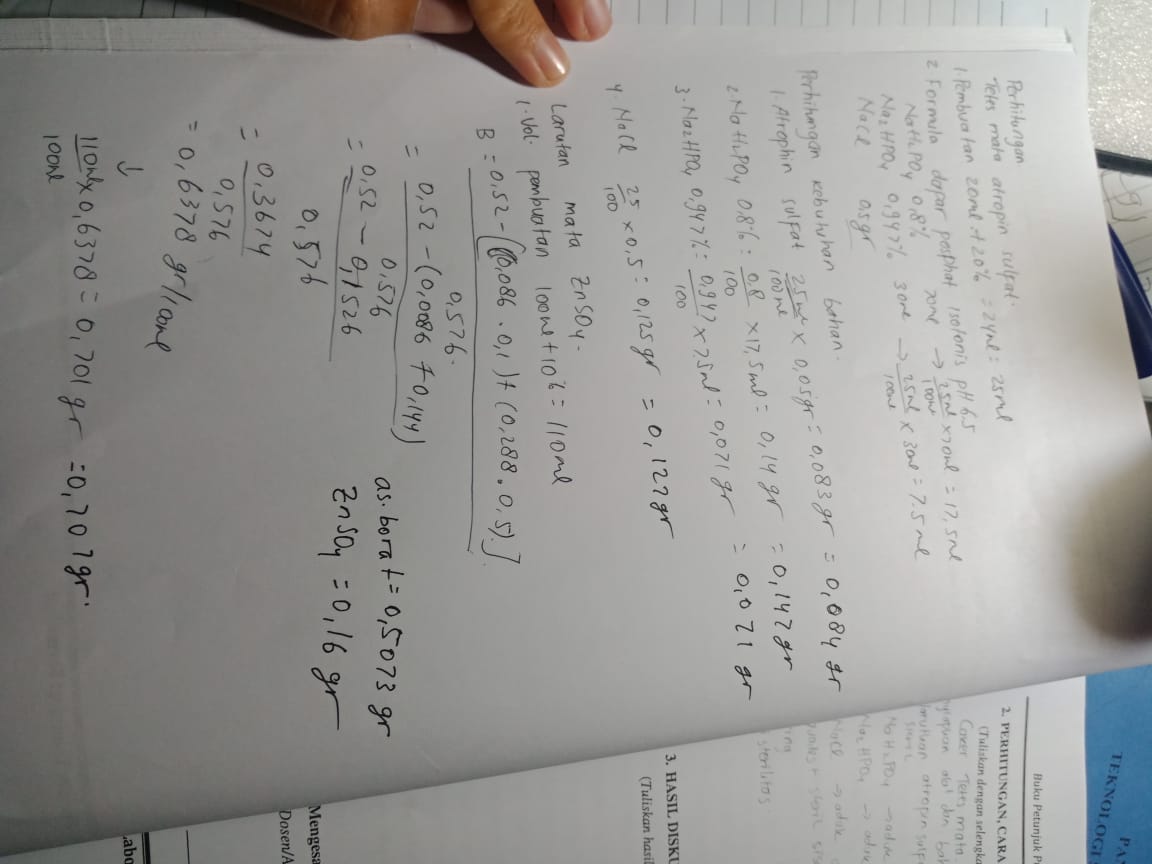 Perhitungan
Tetes mata atropin sulfat.
1. Pembuatan 20ml + 20% = 24ml = 25ml
2 Formula dapar posphat isotonis pH 6.5
NaH₂PO₄ 0,8% 70ml → 25ml/100ml x 70ml = 17,5ml
Na₂HPO₄ 0,947% 30ml → 25ml/100ml x 30ml = 7.5ml
NaCl 0,5gr
Perhitungan kebutuhan bahan.
1. Atrophin sulfat 25ml/100ml x 0,05gr = 0,083gr = 0,084 gr
2. NaH₂PO₄ 0.8% = 0.8/100 x 17,5ml = 0,14 gr = 0,142gr
3. Na₂HPO₄ 0,947% = 0,947/100 x 7.5ml = 0,071 gr = 0,071 gr
4. NaCl 25/100 x 0,5 = 0,125gr = 0,127gr
Larutan mata ZnSO₄.
1. Vol. pembuatan 100ml + 10% = 110ml
B = 0,52 - [(0,086 . 0,1) + (0,288 . 0,5)]
0,576.
= 0,52 - (0,0086 + 0,144)
0,576
= 0,52 - 0,1526
0,576
as. borat = 0,5073 gr
ZnSO₄ = 0,16 gr
= 0,3674
0,576
= 0,6378 gr/100ml
↓
110ml/100ml x 0,6378 = 0,701 gr = 0,707gr.
PA
TEKNOLOGI
Buku Petunjuk Pr
2. PERHITUNGAN, CARA
(Tuliskan dengan selengka
Cara: Tetes mata
NaH₂PO₄ → aduk
Na₂HPO₄ → adu
NaCl → aduk
sterilitas
3. HASIL DISKU
(Tuliskan hasil
Mengesa
Dosen/A
Labo